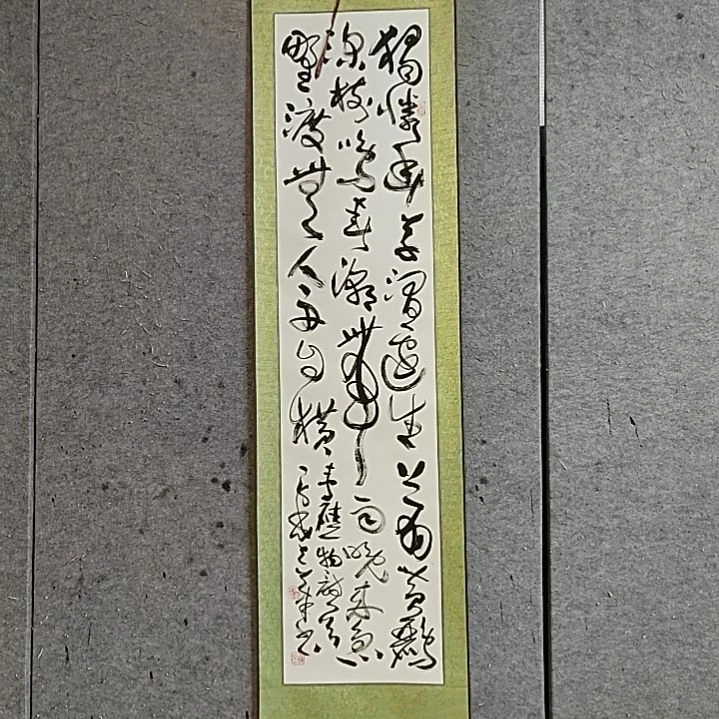 獨憐幽草澗邊生上有黃鸝
深樹鳴春潮帶雨晚來急
野渡無人舟自橫
韋應物詩
書